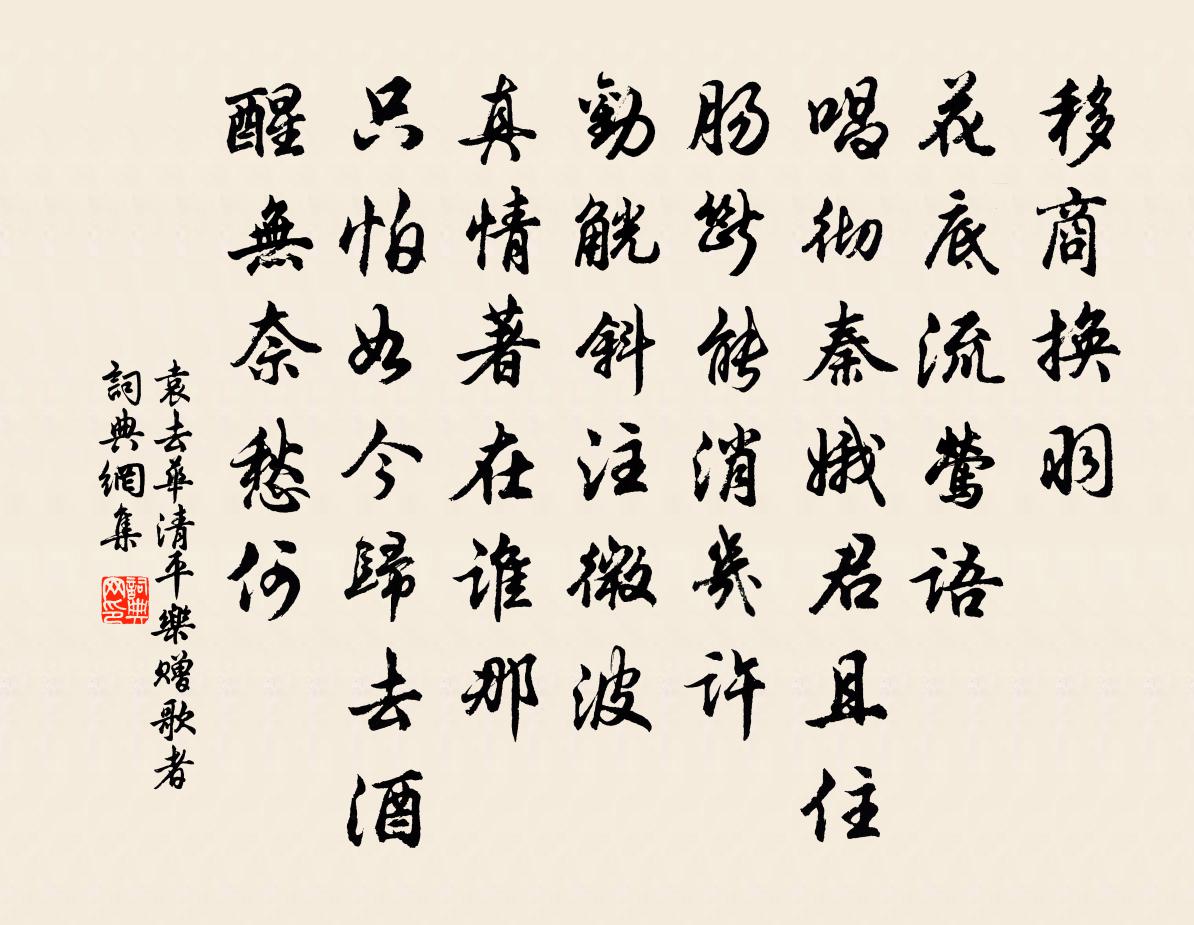 移商換羽
花底流鶯語
唱彻秦娥君且住
肠斷能消幾許
勸觥斜注微波
真情著在誰那
只怕如今歸去酒
醒無奈愁何
袁去華清平樂赠歌者
詞典網集
詞典
网印